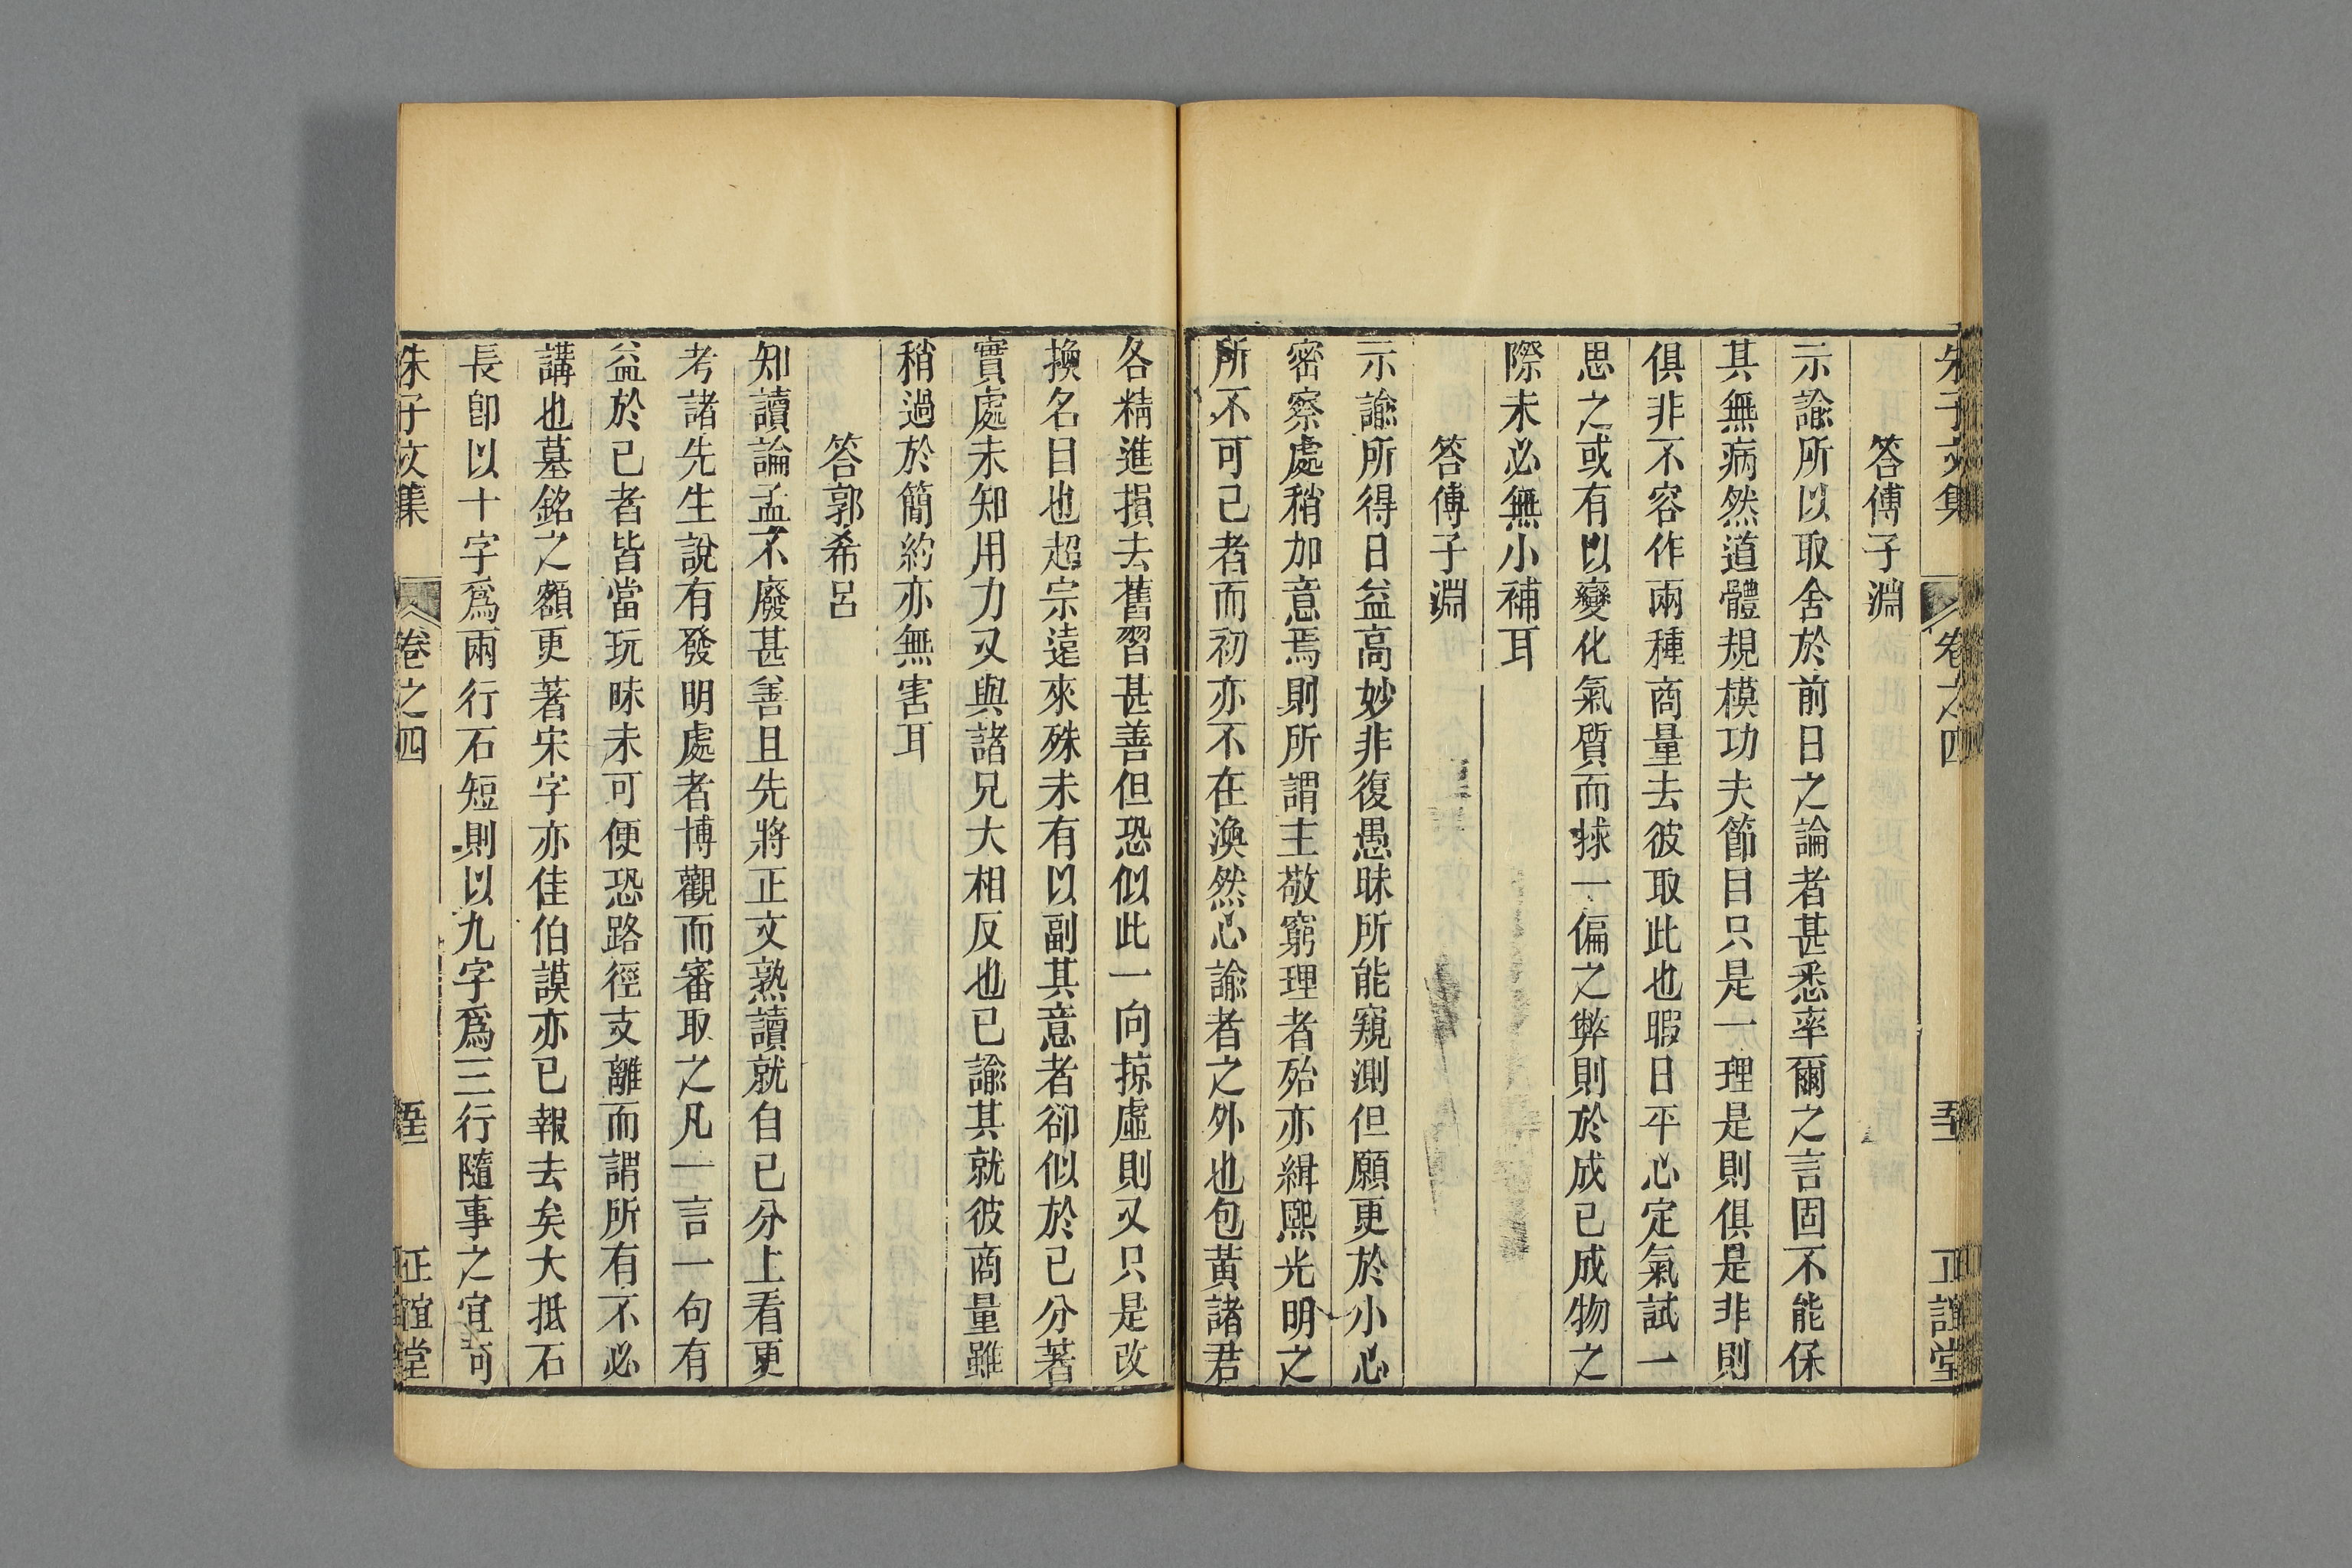 朱子文集 卷之四 正誼堂
答傅子淵
示諭所以取舍於前日之論者甚悉率爾之言固不能保
其無病然道體規模功夫節目只是一理是則俱是非則
俱非不容作兩種商量去彼取此也暇日平心定氣試一
思之或有以變化氣質而捄一偏之弊則於成己成物之
際未必無小補耳
答傅子淵
示諭所得日益高妙非復愚昧所能窺測但願更於小心
密察處稍加意焉則所謂主敬窮理者殆亦緝熙光明之
所不可已者而初亦不在渙然心諭者之外也包黃諸君
各精進損去舊習甚善但恐似此一向掠虛則又只是改
換名目也超宗遠來殊未有以副其意者卻似於己分著
實處未知用力又與諸兄大相反也已諭其就彼商量雖
稍過於簡約亦無害耳
答郭希呂
知讀論孟不廢甚善且先將正文熟讀就自己分上看更
考諸先生說有發明處者博觀而審取之凡一言一句有
益於己者皆當玩味未可便恐路徑支離而謂所有不必
講也墓銘之額更著宋字亦佳伯謨亦已報去矣大抵石
長卽以十字爲兩行石短則以九字爲三行隨事之宜可
朱子文集 卷之四 正誼堂